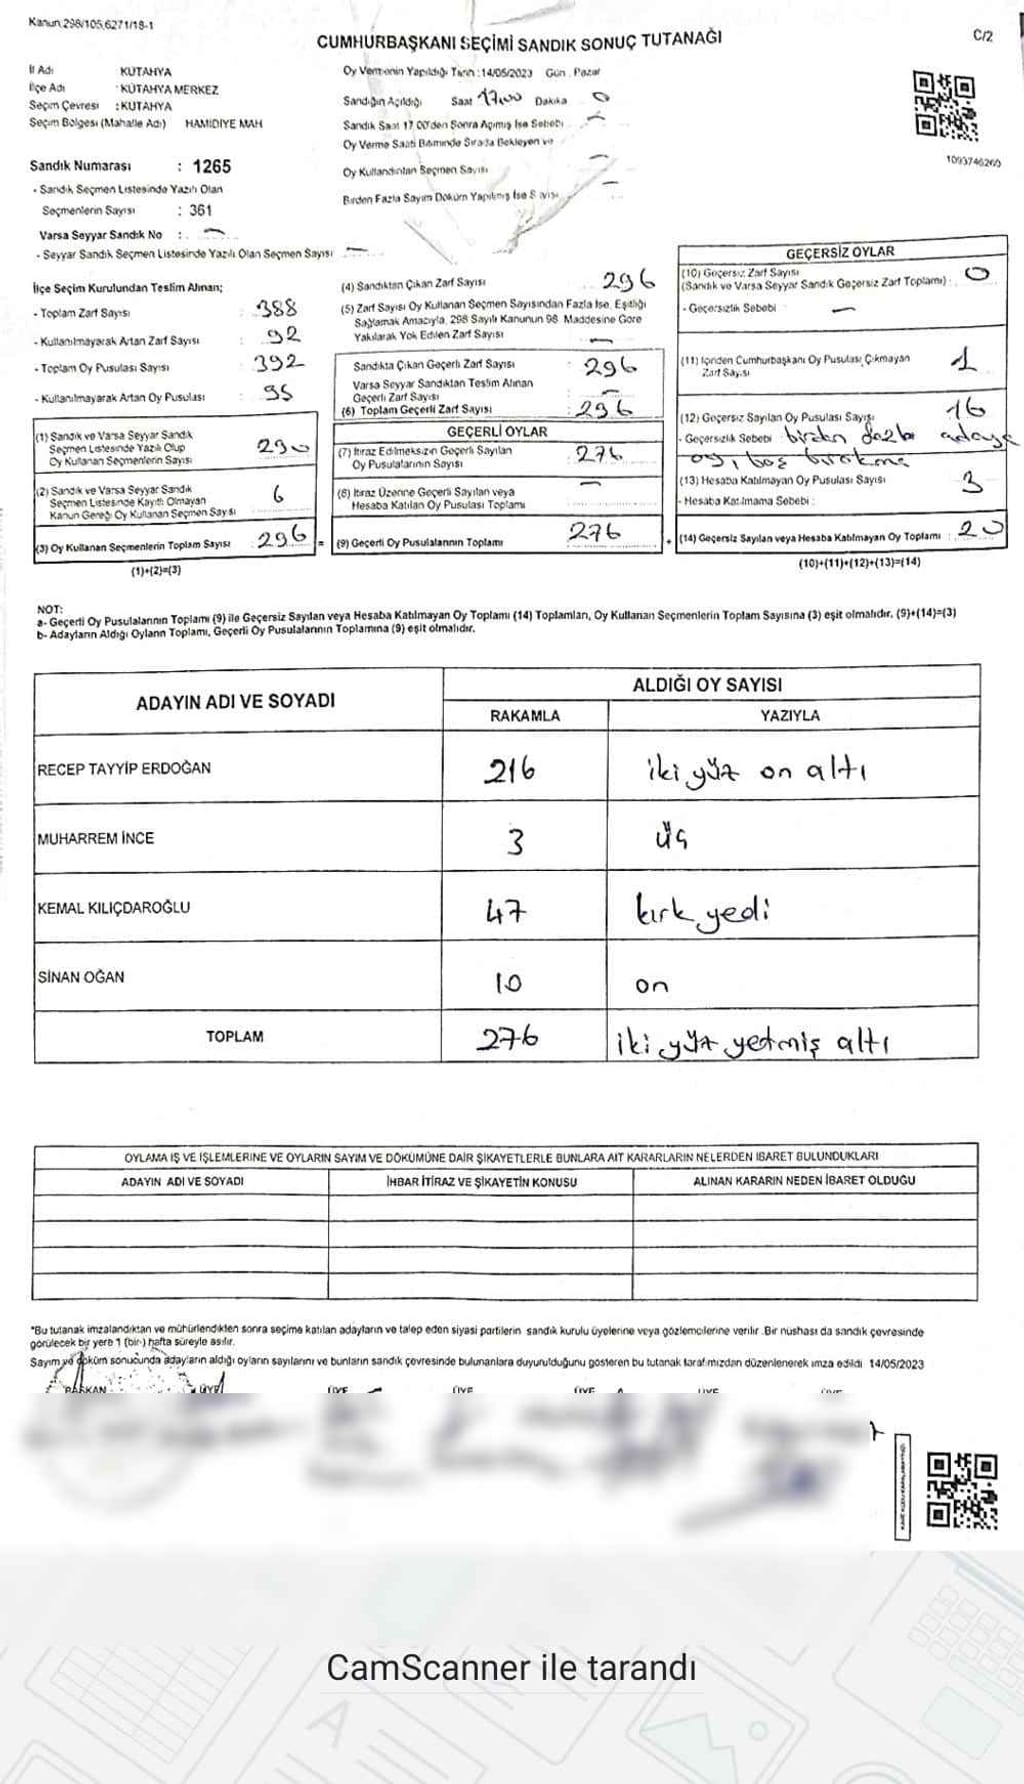 Kanun 298/105,6271/18-1
CUMHURBAŞKANI SEÇİMİ SANDIK SONUÇ TUTANAĞI
C/2
İl Adı KÜTAHYA
İlçe Adı KÜTAHYA MERKEZ
Seçim Çevresi : KÜTAHYA
Seçim Bölgesi (Mahalle Adı) HAMİDİYE MAH
Oy Vermenin Yapıldığı Tarih : 14/05/2023 Gün : Pazar
Sandığın Açıldığı Saat 17:00 Dakika 0
Sandık Saat 17.00'den Sonra Açılmış İse Sebebi
Oy Verme Saati Bitiminde Sırada Bekleyen ve
Oy Kullandırılan Seçmen Sayısı
Birden Fazla Sayım Döküm Yapılmış İse Sayısı
1093746260
Sandık Numarası : 1265
- Sandık Seçmen Listesinde Yazılı Olan
Seçmenlerin Sayısı : 361
Varsa Seyyar Sandık No : —
- Seyyar Sandık Seçmen Listesinde Yazılı Olan Seçmen Sayısı —
İlçe Seçim Kurulundan Teslim Alınan;
- Toplam Zarf Sayısı : 388
- Kullanılmayarak Artan Zarf Sayısı : 92
- Toplam Oy Pusulası Sayısı : 392
- Kullanılmayarak Artan Oy Pusulası : 95
(1) Sandık ve Varsa Seyyar Sandık
Seçmen Listesinde Yazılı Olup
Oy Kullanan Seçmenlerin Sayısı 290
(2) Sandık ve Varsa Seyyar Sandık
Seçmen Listesinde Kayıtlı Olmayan
Kanun Gereği Oy Kullanan Seçmen Sayısı 6
(3) Oy Kullanan Seçmenlerin Toplam Sayısı : 296
(1)+(2)=(3)
(4) Sandıktan Çıkan Zarf Sayısı 296
(5) Zarf Sayısı Oy Kullanan Seçmen Sayısından Fazla İse, Eşitliği
Sağlamak Amacıyla, 298 Sayılı Kanunun 98. Maddesine Göre
Yakılarak Yok Edilen Zarf Sayısı —
Sandıkta Çıkan Geçerli Zarf Sayısı : 296
Varsa Seyyar Sandıktan Teslim Alınan
Geçerli Zarf Sayısı —
(6) Toplam Geçerli Zarf Sayısı : 296
GEÇERLİ OYLAR
(7) İtiraz Edilmeksizin Geçerli Sayılan
Oy Pusulalarının Sayısı : 276
(8) İtiraz Üzerine Geçerli Sayılan veya
Hesaba Katılan Oy Pusulası Toplamı —
= (9) Geçerli Oy Pusulalarının Toplamı 276
GEÇERSİZ OYLAR
(10) Geçersiz Zarf Sayısı
(Sandık ve Varsa Seyyar Sandık Geçersiz Zarf Toplamı) : 0
- Geçersizlik Sebebi : —
(11) İçinden Cumhurbaşkanı Oy Pusulası Çıkmayan
Zarf Sayısı 1
(12) Geçersiz Sayılan Oy Pusulası Sayısı 16
- Geçersizlik Sebebi birden fazla adaya
oy, boş bırakma
(13) Hesaba Katılmayan Oy Pusulası Sayısı 3
- Hesaba Katılmama Sebebi :
+ (14) Geçersiz Sayılan veya Hesaba Katılmayan Oy Toplamı : 20
(10)+(11)+(12)+(13)=(14)
NOT:
a- Geçerli Oy Pusulalarının Toplamı (9) ile Geçersiz Sayılan veya Hesaba Katılmayan Oy Toplamı (14) Toplamları, Oy Kullanan Seçmenlerin Toplam Sayısına (3) eşit olmalıdır. (9)+(14)=(3)
b- Adayların Aldığı Oyların Toplamı, Geçerli Oy Pusulalarının Toplamına (9) eşit olmalıdır.
ADAYIN ADI VE SOYADI
ALDIĞI OY SAYISI
RAKAMLA YAZIYLA
RECEP TAYYİP ERDOĞAN 216 iki yüz on altı
MUHARREM İNCE 3 üç
KEMAL KILIÇDAROĞLU 47 kırk yedi
SİNAN OĞAN 10 on
TOPLAM 276 iki yüz yetmiş altı
OYLAMA İŞ VE İŞLEMLERİNE VE OYLARIN SAYIM VE DÖKÜMÜNE DAİR ŞİKAYETLERLE BUNLARA AİT KARARLARIN NELERDEN İBARET BULUNDUKLARI
ADAYIN ADI VE SOYADI İHBAR İTİRAZ VE ŞİKAYETİN KONUSU ALINAN KARARIN NEDEN İBARET OLDUĞU
*Bu tutanak imzalandıktan ve mühürlendikten sonra seçime katılan adayların ve talep eden siyasi partilerin sandık kurulu üyelerine veya gözlemcilerine verilir. Bir nüshası da sandık çevresinde
görülecek bir yere 1 (bir) hafta süreyle asılır.
Sayım ve döküm sonucunda adayların aldığı oyların sayılarını ve bunların sandık çevresinde bulunanlara duyurulduğunu gösteren bu tutanak tarafımızdan düzenlenerek imza edildi 14/05/2023
BAŞKAN ÜYE ÜYE ÜYE ÜYE ÜYE
CamScanner ile tarandı